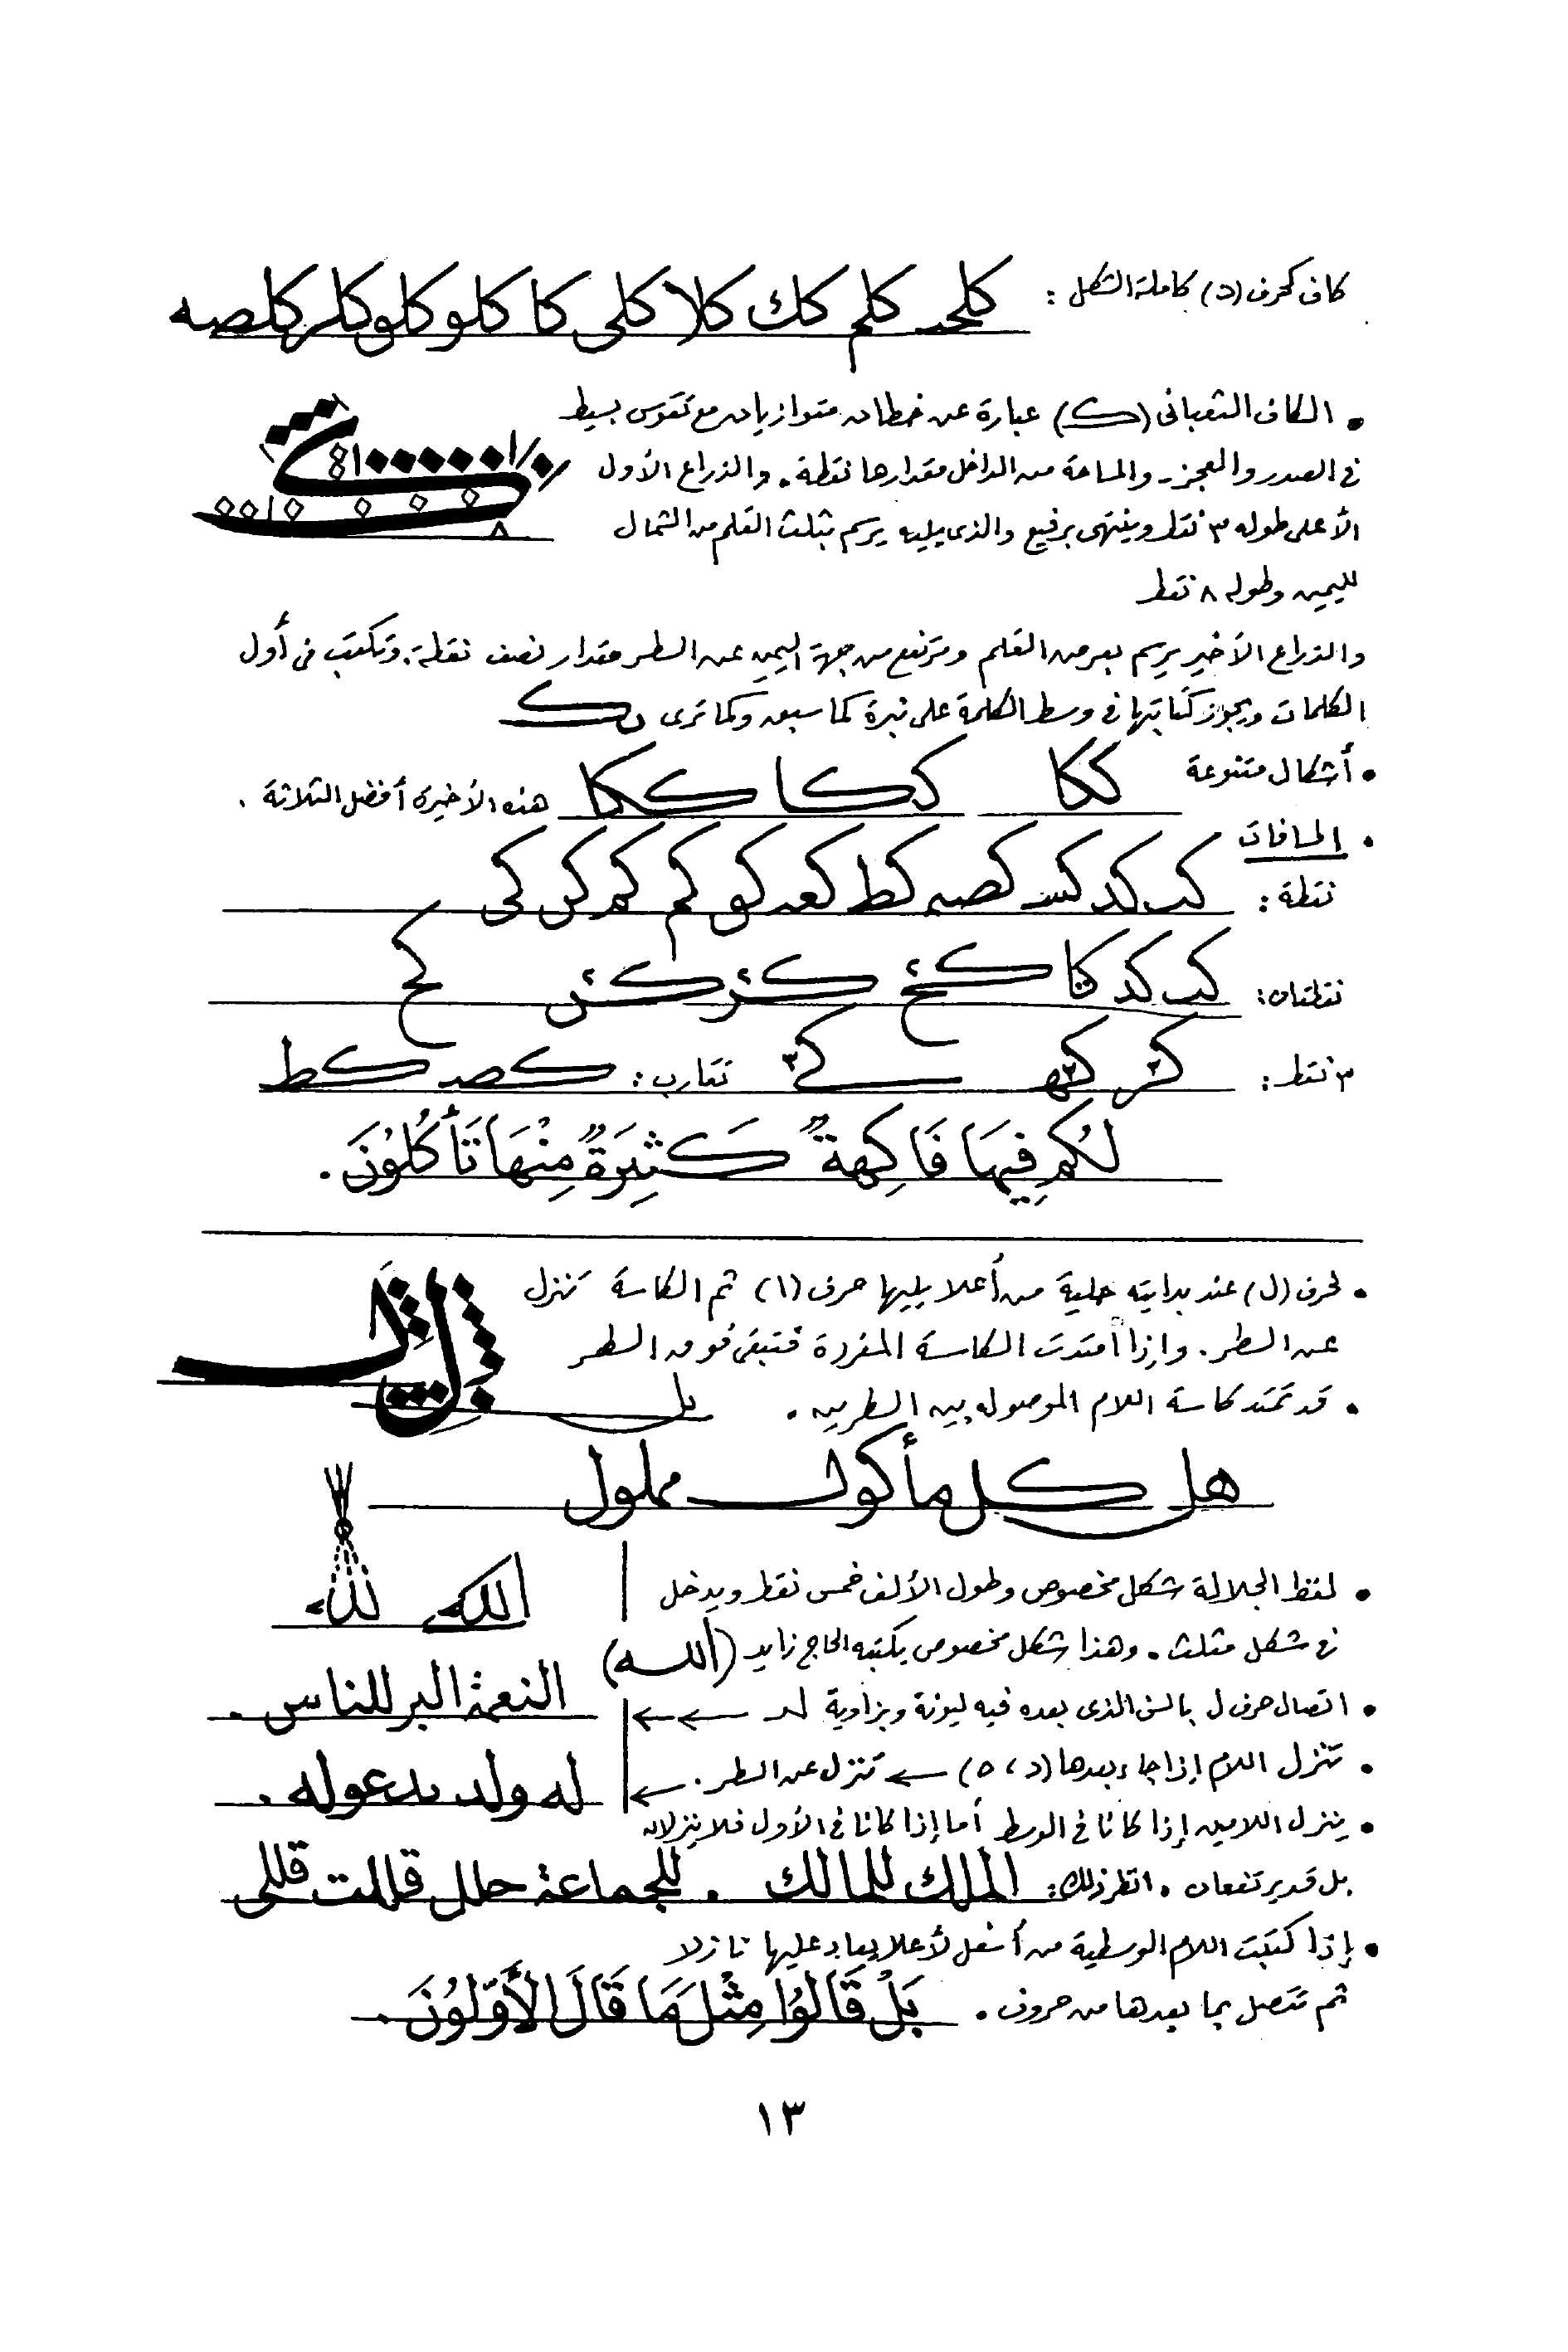 كاف كحرف (د) كاملة الشكل : كلحد كلم كك كلا كلى كا كلو كلو كلر كلصه
• الكاف الثعبانى (ك) عبارة عن خطان متوازيان مع تقوس بسيط
فى الصدر والعجز - والمساحة من الداخل مقدارها نقطة . والذراع الأول
الأعلى طوله ٣ نقط وينتهى برفيع والذى يليه يرسم بثلث القلم من الشمال
لليمين وطوله ٨ نقط
والذراع الأخير يرسم بعرض القلم وترتفع من جهة اليمين عن السطر مقدار نصف نقطة . وتكتب فى أول
الكلمات ويجوز كتابتها فى وسط الكلمة على نبرة كما سبق وكما ترى
• أشكال متنوعة ككا ككا ككا هذه الأخيرة أفضل الثلاثة .
• المسافات
نقطة : كب كد كسد كصه كط كعه كو كم كم كن كى
نقطتان : كب كد كا كخ كر كن كح
٣ نقط : كر كه ك ٣ تقارب : كصد كط
لَكُم فِيهَا فَاكِهةٌ كَثِيرَةٌ مِنْهَا تَأكُلُونَ .
• لحرف (ل) عند بدايته حلية من أعلا يليها حرف (١) ثم الكاسة تنزل
عن السطر . وإذا أمتدت الكاسة المفردة فتبقى فوق السطر
• قد تمتد كاسة اللام الموصول بين السطرين . بل
هل كل مأكول مملول
• لفظ الجلالة شكل مخصوص وطول الألف خمس نقط ويدخل الله لله
فى شكل مثلث . وهذا شكل مخصوص يكتبه الحاج زايد (الله)
• اتصال حرف ل بالسن الذى بعده فيه ليونة وبزاوية لـ النعمة البر للناس .
• تنزل اللام إذا جاء بعدها (د ، ه) تنزل عن السطر . له ولد يدعوله .
• ينزل اللامين إذا كانا فى الوسط أما إذا كانا فى الأول فلا ينزلان
بل قد يرتفعان . انظر ذلك : الملك للمالك . للجماعة حلل قللت قللى
• إذا كتبت اللام الوسطية من أسفل لأعلا يعاد عليها نازلا
ثم تتصل بما بعدها من حروف . بَلْ قَالُوا مِثْلَ مَا قَالَ الأَوَّلُونَ .
١٣